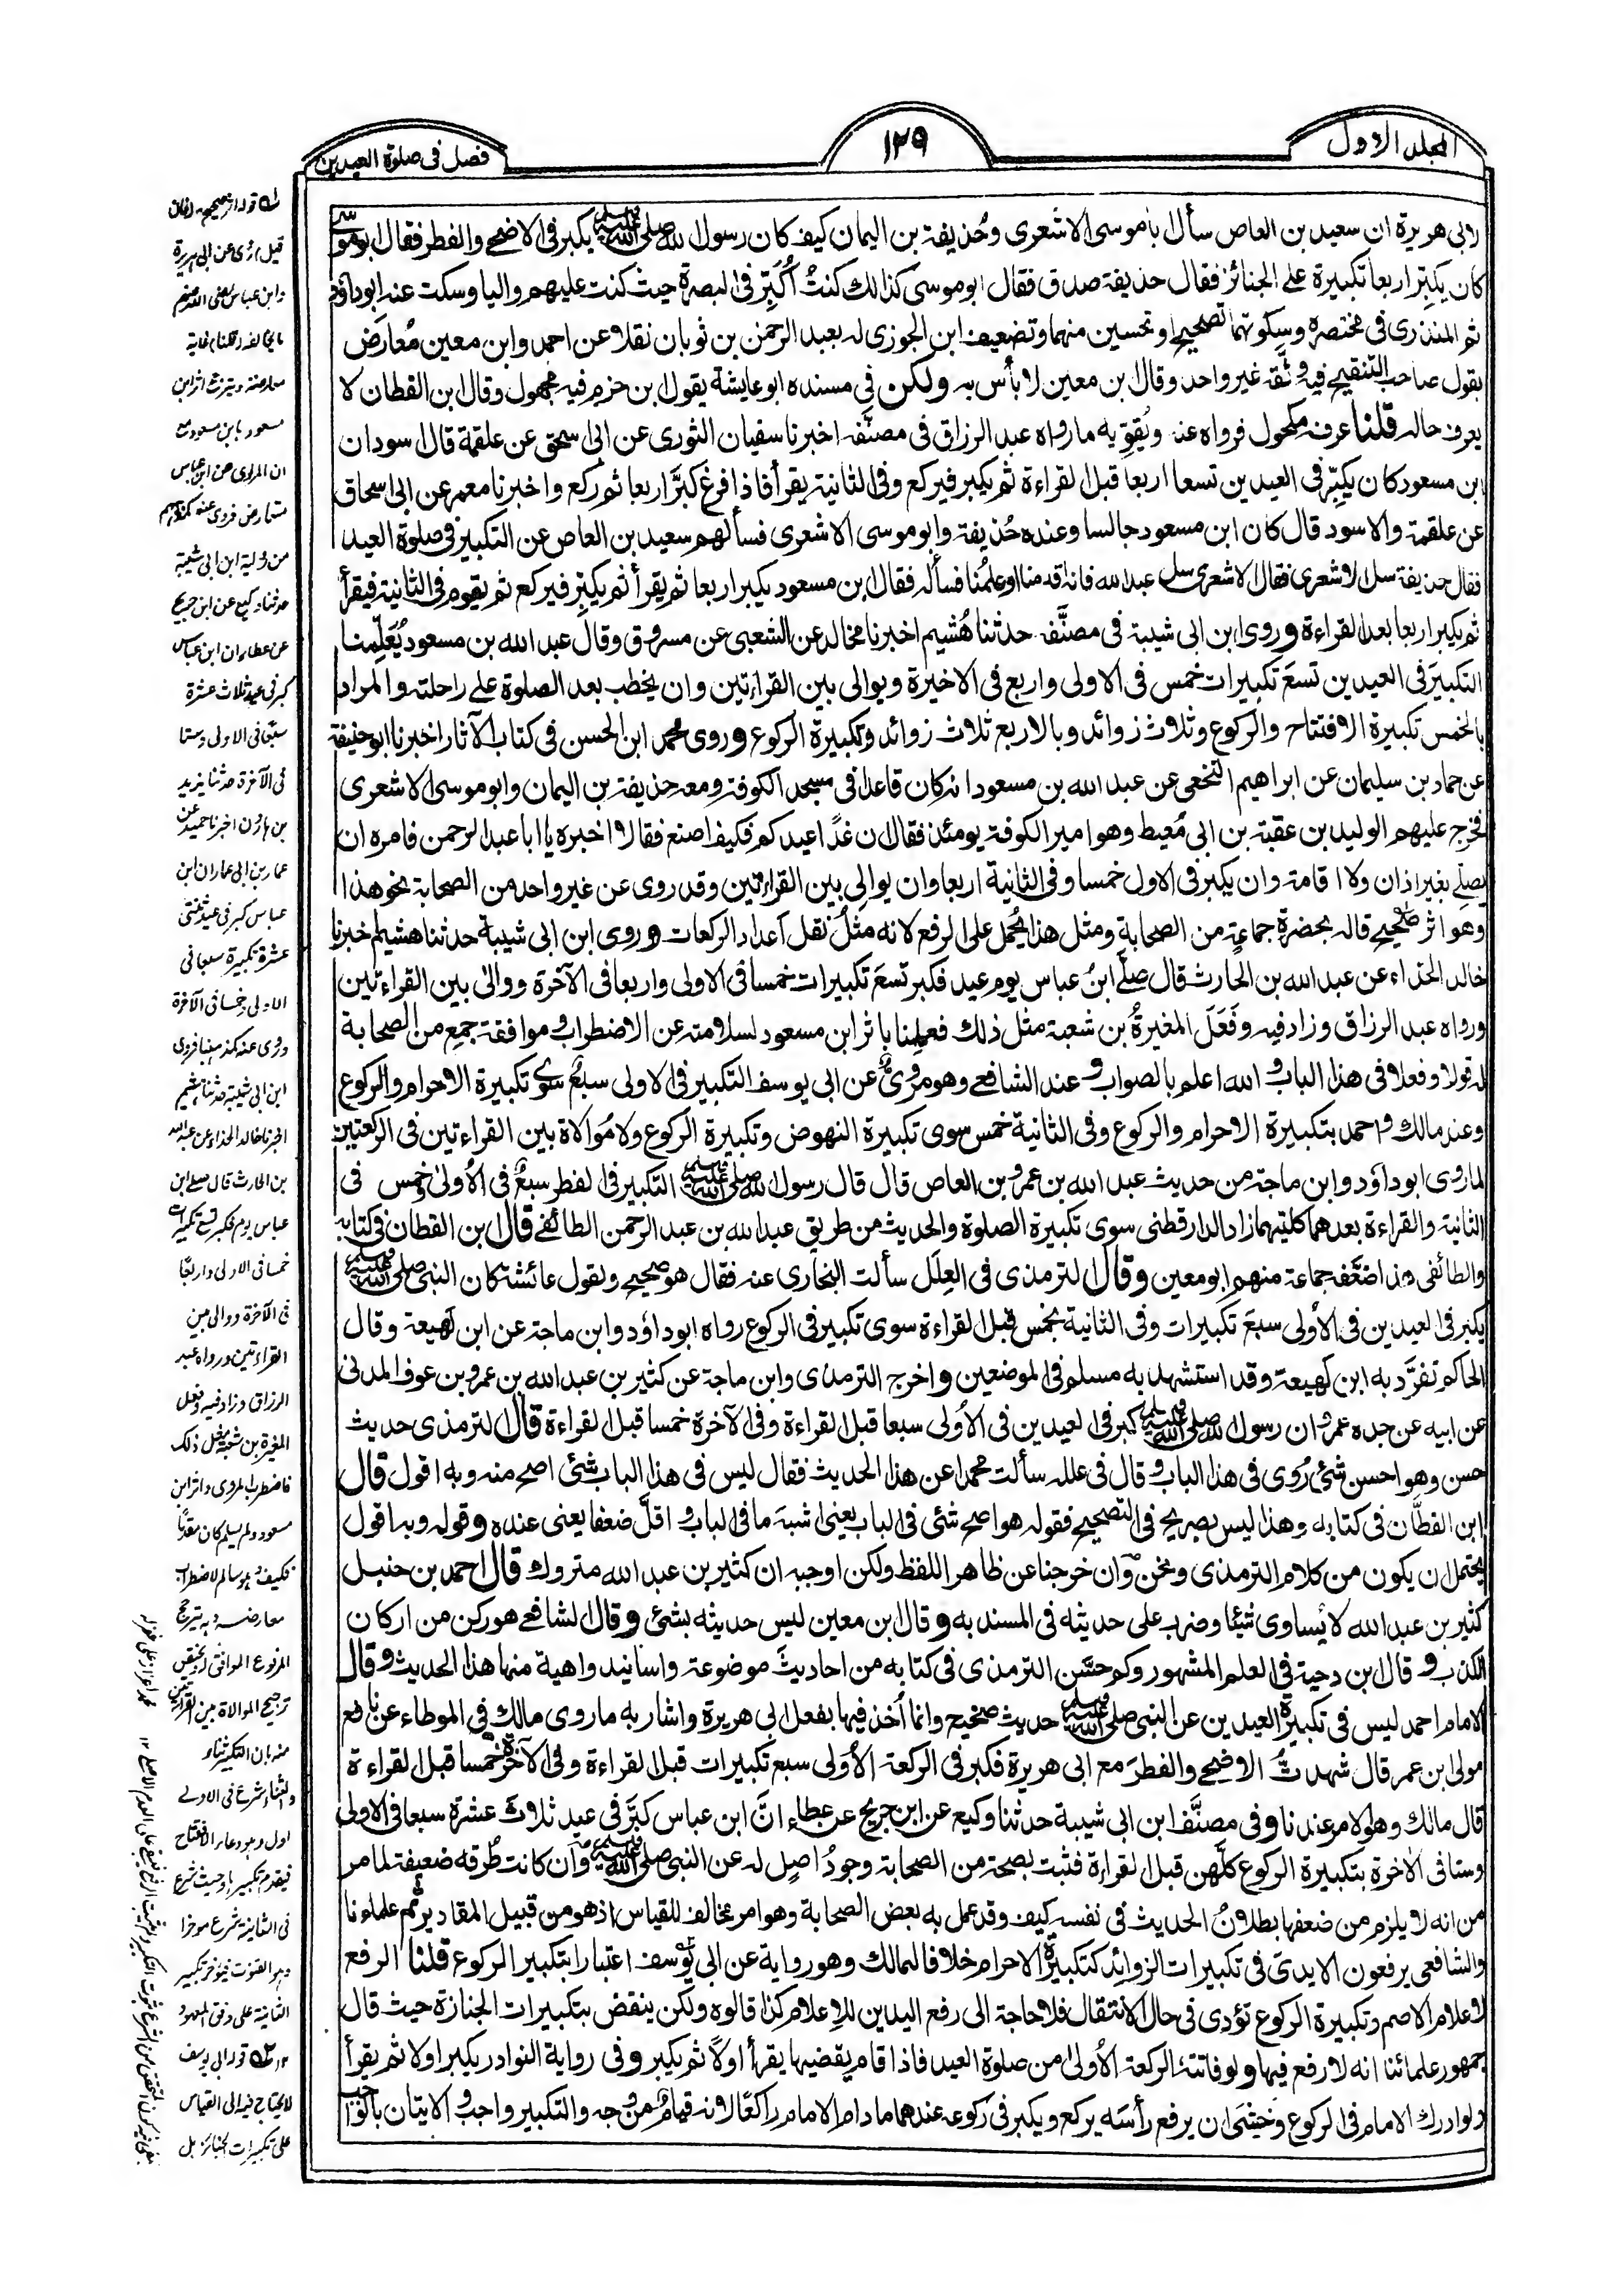 المجلد الاول
١٢٩
فصل فی صلوة العیدین
ابی هریرة ان سعید بن العاص سأل ابا موسی الاشعری وحُذیفة بن الیمان کیف کان رسول الله صلی الله علیه وسلم یکبر فی الاضحی والفطر فقال ابو موسی
کان یکبّر اربعا تکبیرة علی الجنائز فقال حذیفة صدق فقال ابو موسی کذالك کنتُ اُکَبّر فی البصرة حیث کنت علیهم والیا وسکت عنه ابوداؤد
ثم المنذری فی مختصره وسکوتهما تصحیح او تحسین منهما وتضعیف ابن الجوزی له بعبد الرحمن بن ثوبان نقلا عن احمد وابن معین مُعارَض
بقول صاحب التنقیح فیه وثَّقه غیر واحد وقال ابن معین لا بأس به ولکن فی مسنده ابو عایشة یقول ابن حزم فیه مجهول وقال ابن القطان لا
یعرف حاله قلنا عرفه مکحول فرواه عنه ویُقوّیه ما رواه عبد الرزاق فی مصنَّفه اخبرنا سفیان الثوری عن ابی اسحق عن علقمة قال اسود ان
ابن مسعود کان یکبّر فی العیدین تسعا اربعا قبل القراءة ثم یکبر فیرکع وفی الثانیة یقرأ فاذا فرغ کبَّر اربعا ثم رکع واخبرنا معمر عن ابی اسحاق
عن علقمة والاسود قال کان ابن مسعود جالسا وعنده حُذیفة وابو موسی الاشعری فسألهم سعید بن العاص عن التکبیر فی صلوة العید
فقال حذیفة سل الاشعری فقال الاشعری سل عبد الله فانه اقدمنا واعلمُنا فسأله فقال ابن مسعود یکبر اربعا ثم یقرأ ثم یکبّر فیرکع ثم یقوم فی الثانیة فیقرأ
ثم یکبر اربعا بعد القراءة وروی ابن ابی شیبة فی مصنَّفه حدثنا هُشیم اخبرنا مخالد عن الشعبی عن مسروق وقال عبد الله بن مسعود یُعَلّمنا
التکبیرَ فی العیدین تسعَ تکبیرات خمس فی الاولی واربع فی الاخیرة ویوالی بین القراءتین وان یخطب بعد الصلوة علی راحلته والمراد
بالخمس تکبیرة الافتتاح والرکوع وثلاث زوائد وبالاربع ثلاث زوائد وتکبیرة الرکوع وروی محمد ابن الحسن فی کتاب الآثار اخبرنا ابو حنیفة
عن حماد بن سلیمان عن ابراهیم النخعی عن عبد الله بن مسعود انه کان قاعدا فی مسجد الکوفة ومعه حذیفة بن الیمان وابو موسی الاشعری
فخرج علیهم الولید بن عقبة بن ابی مُعیط وهو امیر الکوفة یومئذ فقال ان غدًا عیدکم فکیف اصنع فقالا اخبره یا ابا عبد الرحمن فامره ان
یصلی بغیر اذان ولا اقامة وان یکبر فی الاول خمسا وفی الثانیة اربعا وان یوالی بین القراءتین وقد روی عن غیر واحد من الصحابة نحو هذا
وهو اثر صحیح قاله بحضرة جماعة من الصحابة ومثل هذا یُحمل علی الرفع لانه مثلُ نقل أعداد الرکعات وروی ابن ابی شیبة حدثنا هشیم اخبرنا
خالد الحذاء عن عبد الله بن الحارث قال صلّی ابنُ عباس یوم عید فکبر تسعَ تکبیرات خمسا فی الاولی واربعا فی الآخرة ووالی بین القراءتین
ورواه عبد الرزاق وزاد فیه وفَعَلَ المغیرةُ بن شعبة مثل ذلك فعملنا باثر ابن مسعود لسلامته عن الاضطراب وموافقة جمع من الصحابة
له قولا وفعلا فی هذا الباب والله اعلم بالصواب وعند الشافعی وهو مرویٌ عن ابی یوسف التکبیر فی الاولی سبعٌ سوی تکبیرة الاحرام والرکوع
وعند مالك واحمد بتکبیرة الاحرام والرکوع وفی الثانیة خمس سوی تکبیرة النهوض وتکبیرة الرکوع ولا مُوالاة بین القراءتین فی الرکعتین
لما روی ابو داؤد وابن ماجة من حدیث عبد الله بن عمرو بن العاص قال قال رسول الله صلی الله علیه وسلم التکبیر فی الفطر سبعٌ فی الاُولیٰ وخمس فی
الثانیة والقراءة بعدهما کلتیهما زاد الدارقطنی سوی تکبیرة الصلوة والحدیث من طریق عبد الله بن عبد الرحمن الطائفی قال ابن القطان فی کتابه
والطائفی هذا ضعَّفه جماعة منهم ابو معین وقال الترمذی فی العِلَل سألت البخاری عنه فقال هو صحیح ولقول عائشة کان النبی صلی الله علیه وسلم
یکبر فی العیدین فی الاُولی سبعَ تکبیرات وفی الثانیة بخمس قبل القراءة سوی تکبیر فی الرکوع رواه ابو داؤد وابن ماجة عن ابن لَهیعة وقال
الحاکم تفرَّد به ابن لَهیعة وقد استشهد به مسلم فی الموضعین واخرج الترمذی وابن ماجة عن کثیر بن عبد الله بن عمرو بن عوف المدنی
عن ابیه عن جده عمرو ان رسول الله صلی الله علیه وسلم کبر فی العیدین فی الاُولی سبعا قبل القراءة وفی الآخرة خمسا قبل القراءة قال الترمذی حدیث
حسن وهو احسن شئ رُوی فی هذا الباب وقال فی علله سألت محمدا عن هذا الحدیث فقال لیس فی هذا الباب شئ اصح منه وبه اقول قال
ابن القطَّان فی کتابه وهذا لیس بصریح فی التصحیح فقوله هو اصح شئ فی الباب یعنی اشبهَ ما فی الباب واقلَّ ضعفا یعنی عنده وقوله وبه اقول
یحتمل ان یکون من کلام الترمذی ونحن وان خرجنا عن ظاهر اللفظ ولکن اوجبه ان کثیر بن عبد الله متروك قال احمد بن حنبل
کثیر بن عبد الله لا یُساوی شیئا وضرب علی حدیثه فی المسند به وقال ابن معین لیس حدیثه بشئ وقال الشافعی هو رکن من ارکان
الکذب وقال ابن دحیة فی العلم المشهور وکم حسَّن الترمذی فی کتابه من احادیثَ موضوعة واسانید واهیة منها هذا الحدیث وقال
الامام احمد لیس فی تکبیرة العیدین عن النبی صلی الله علیه وسلم حدیث صحیح وانما اُخذ فیها بفعل ابی هریرة واشار به ما روی مالك فی الموطاء عن نافع
مولی ابن عمر قال شهدتُ الاضحی والفطرَ مع ابی هریرة فکبر فی الرکعة الاُولی سبع تکبیرات قبل القراءة وفی الآخرة خمسا قبل القراءة
قال مالك وهو الامر عندنا وفی مصنَّف ابن ابی شیبة حدثنا وکیع عن ابن جریج عن عطاء انَّ ابن عباس کبَّر فی عید ثلاثَ عشرة سبعا فی الاولی
وستا فی الآخرة بتکبیرة الرکوع کلّهن قبل القراءة فثبت بصحة من الصحابة وجودُ اصل له عن النبی صلی الله علیه وسلم وان کانت طُرقه ضعیفة لما مر
من انه لا یلزم من ضعفها بطلانُ الحدیث فی نفسه کیف وقد عمل به بعض الصحابة وهو امر مخالف للقیاس اذ هو من قبیل المقادیر ثم علماءنا
والشافعی یرفعون الایدیَ فی تکبیرات الزوائد کتکبیرة الاحرام خلافا لمالك وهو روایة عن ابی یوسف اعتبارا بتکبیر الرکوع قلنا الرفع
لاعلام الاصم وتکبیرة الرکوع تؤدی فی حال الانتقال فلا حاجة الی رفع الیدین للاعلام کذا قالوه ولکن ینقض بتکبیرات الجنازة حیث قال
جمهور علمائنا انه لا رفع فیها ولو فاتته الرکعة الاُولیٰ من صلوة العید فاذا قام یقضیها یقرأ اولاً ثم یکبر وفی روایة النوادر یکبر اولا ثم یقرأ
ولو ادرك الامام فی الرکوع وخشَی ان یرفع رأسَه یرکع ویکبر فی رکوعه عندهما ما دام الامام راکعًا لانه قیامٌ من وجه والتکبیر واجب والاتیان بالواجب
قیل روی عن ابی هریرة
معارضته ویترجح اثر ابن
ان المروی عن ابن عباس
متعارض فروی عنه کمذهبهم
من روایة ابن ابی شیبة
حدثناه وکیع عن ابن جریج
عن عطاء ان ابن عباس
کبر فی عید ثلاث عشرة
سبعًا فی الاولی وستا
فی الآخرة حدثنا یزید
بن هارون اخبرنا حمید عن
عمار بن ابی عمار ان ابن
عباس کبر فی عید ثنتی
عشرة تکبیرة سبعا فی
الاولی وخمسا فی الآخرة
وروی عنه کمذهبنا فروی
ابن ابی شیبة حدثنا هشیم
اخبرنا خالد الحذاء عن عبد الله
بن الحارث قال صلی ابن
عباس یوم عید فکبر تسع تکبیرات
خمسا فی الاولی واربعًا
فی الآخرة ووالی بین
القراءتین ورواه عبد
الرزاق وزاد فیه وفعل
المغیرة بن شعبة مثل ذلك
فاضطرب المروی واثر ابن
مسعود ولو لم یسلم کان مقدّمًا
فکیف وهو سالم لاضطراب
معارضه وبه یترجح
المرفوع الموافق له ویختص
ترجیح الموالاة بین القراءتین
منه بان التکبیر ثناء
والثناء شرع فی الاولی
اول وهو دعاء الافتتاح
فیقدم تکبیرها وحیث شرع
فی الثانیة شرع مؤخرا
وهو القنوت فیؤخر تکبیر
الثانیة علی وفق المعهود
١٢ قوله ابی یوسف
لا یحتاج فیه الی القیاس
علی تکبیرات الجنائز بل